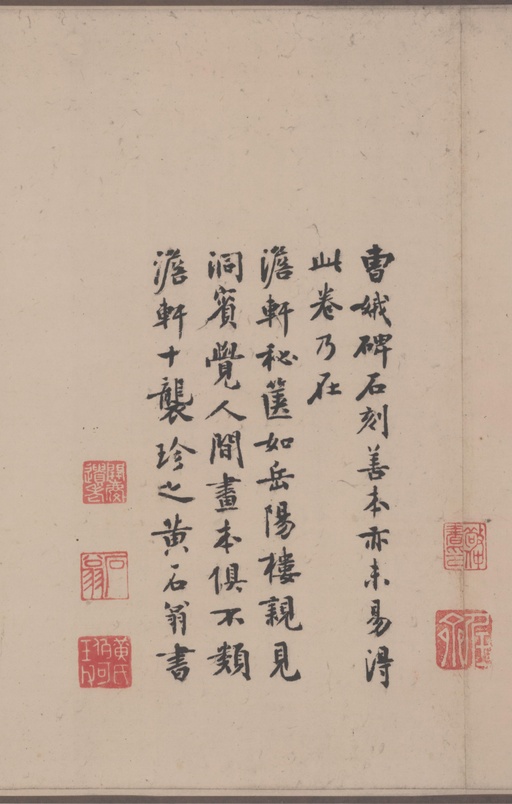 曹娥碑石刻善本亦未易得
此卷乃在
澹軒秘篋如岳陽樓親見
洞賓覺人間畫本俱不類
澹軒十襲珍之黄石翁書
石翁
黄氏